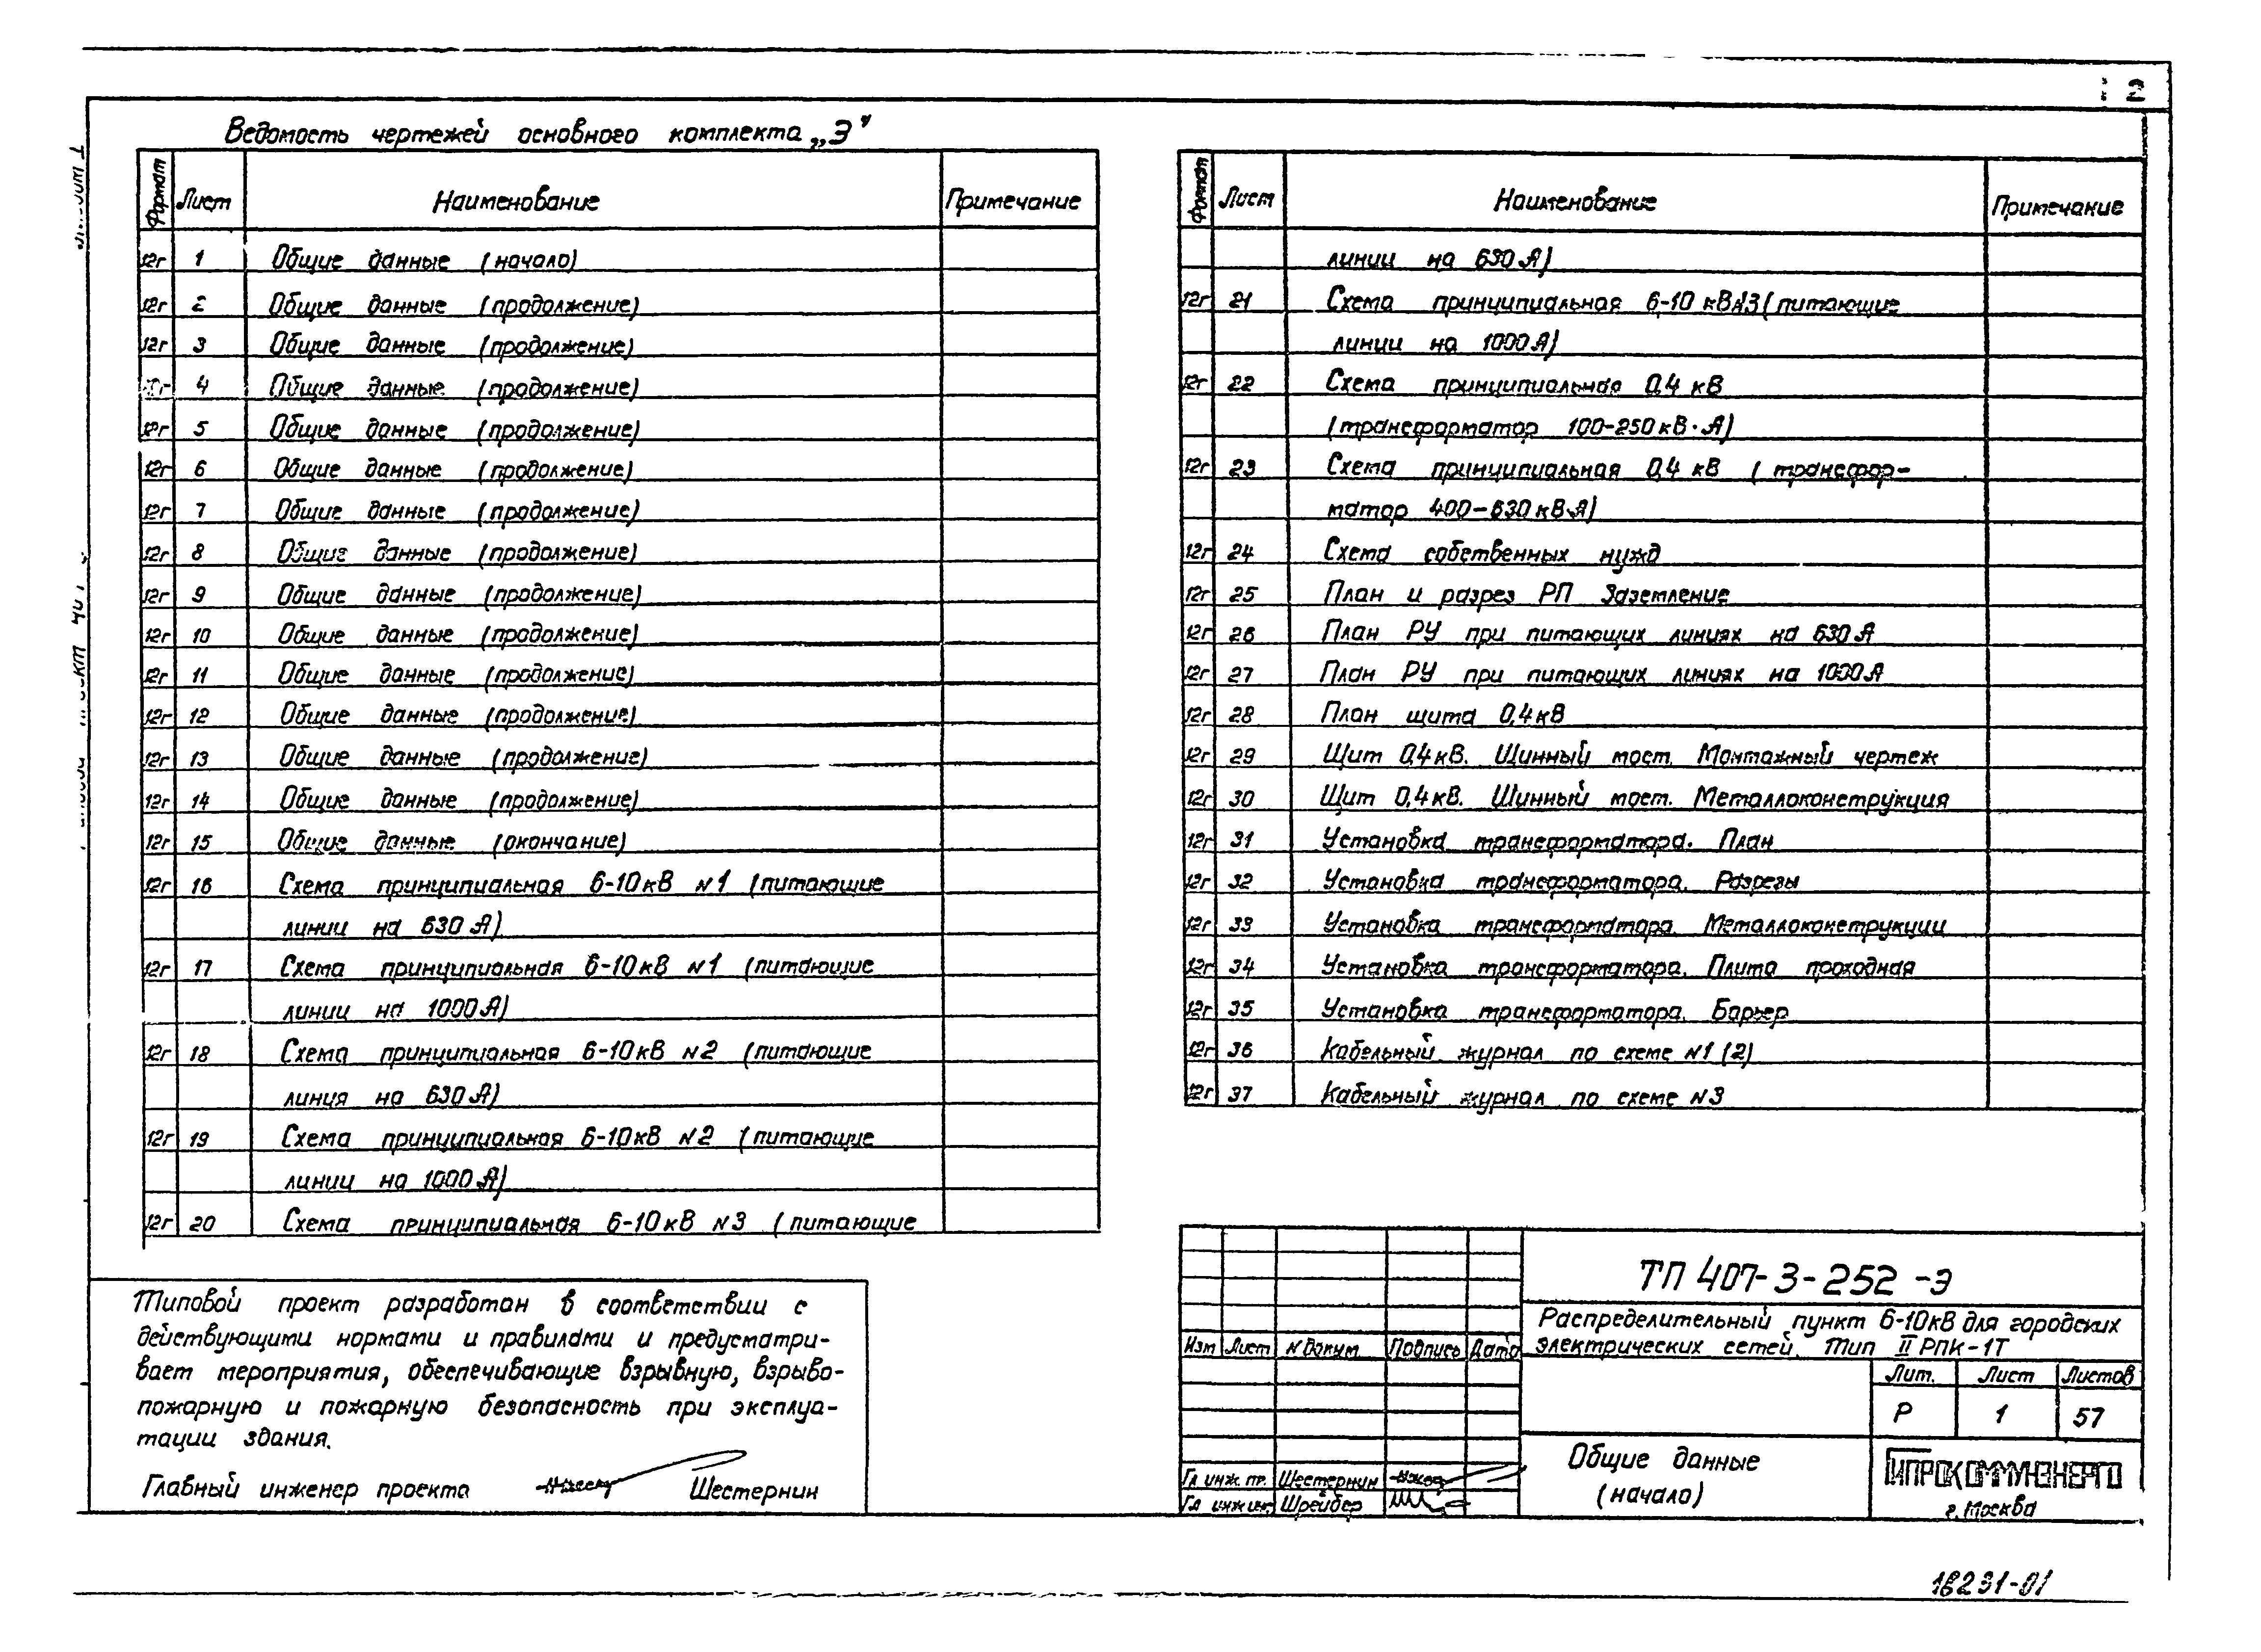 2
Ведомость чертежей основного комплекта „Э"
Формат Лист Наименование Примечание
12г 1 Общие данные (начало)
12г 2 Общие данные (продолжение)
12г 3 Общие данные (продолжение)
4 Общие данные (продолжение)
12г 5 Общие данные (продолжение)
12г 6 Общие данные (продолжение)
12г 7 Общие данные (продолжение)
12г 8 Общие данные (продолжение)
12г 9 Общие данные (продолжение)
12г 10 Общие данные (продолжение)
12г 11 Общие данные (продолжение)
12г 12 Общие данные (продолжение)
12г 13 Общие данные (продолжение)
12г 14 Общие данные (продолжение)
12г 15 Общие данные (окончание)
12г 16 Схема принципиальная 6-10кВ №1 (питающие
линии на 630 А)
12г 17 Схема принципиальная 6-10кВ №1 (питающие
линии на 1000А)
12г 18 Схема принципиальная 6-10кВ №2 (питающие
линия на 630 А)
12г 19 Схема принципиальная 6-10кВ №2 (питающие
линии на 1000 А)
12г 20 Схема принципиальная 6-10кВ №3 (питающие
Формат Лист Наименование Примечание
линии на 630 А)
12г 21 Схема принципиальная 6-10 кВ№3 (питающие
линии на 1000А)
12г 22 Схема принципиальная 0,4 кВ
(трансформатор 100-250кВ·А)
12г 23 Схема принципиальная 0,4 кВ (трансфор-
матор 400-630 кВ·А)
12г 24 Схема собственных нужд
12г 25 План и разрез РП Заземление
12г 26 План РУ при питающих линиях на 630 А
12г 27 План РУ при питающих линиях на 1000А
12г 28 План щита 0,4кВ
12г 29 Щит 0,4кВ. Шинный мост. Монтажный чертеж
12г 30 Щит 0,4кВ. Шинный мост. Металлоконструкция
12г 31 Установка трансформатора. План
12г 32 Установка трансформатора. Разрезы
12г 33 Установка трансформатора. Металлоконструкции
12г 34 Установка трансформатора. Плита проходная
12г 35 Установка трансформатора. Барьер
12г 36 Кабельный журнал по схеме №1 (2)
12г 37 Кабельный журнал по схеме №3
Типовой проект разработан в соответствии с
действующими нормами и правилами и предусматри-
вает мероприятия, обеспечивающие взрывную, взрыво-
пожарную и пожарную безопасность при эксплуа-
тации здания.
Главный инженер проекта Шестернин
ТП 407-3-252-Э
Распределительный пункт 6-10кВ для городских
электрических сетей. Тип II РПК-1Т
Изм Лист № Докум. Подпись Дата
Лит. Лист Листов
Р 1 57
Общие данные
(начало)
Гл инж. пр. Шестернин
Гл инж ин. Шрейбер
ГИПРОКОММУНЭНЕРГО
г. Москва
16231-01